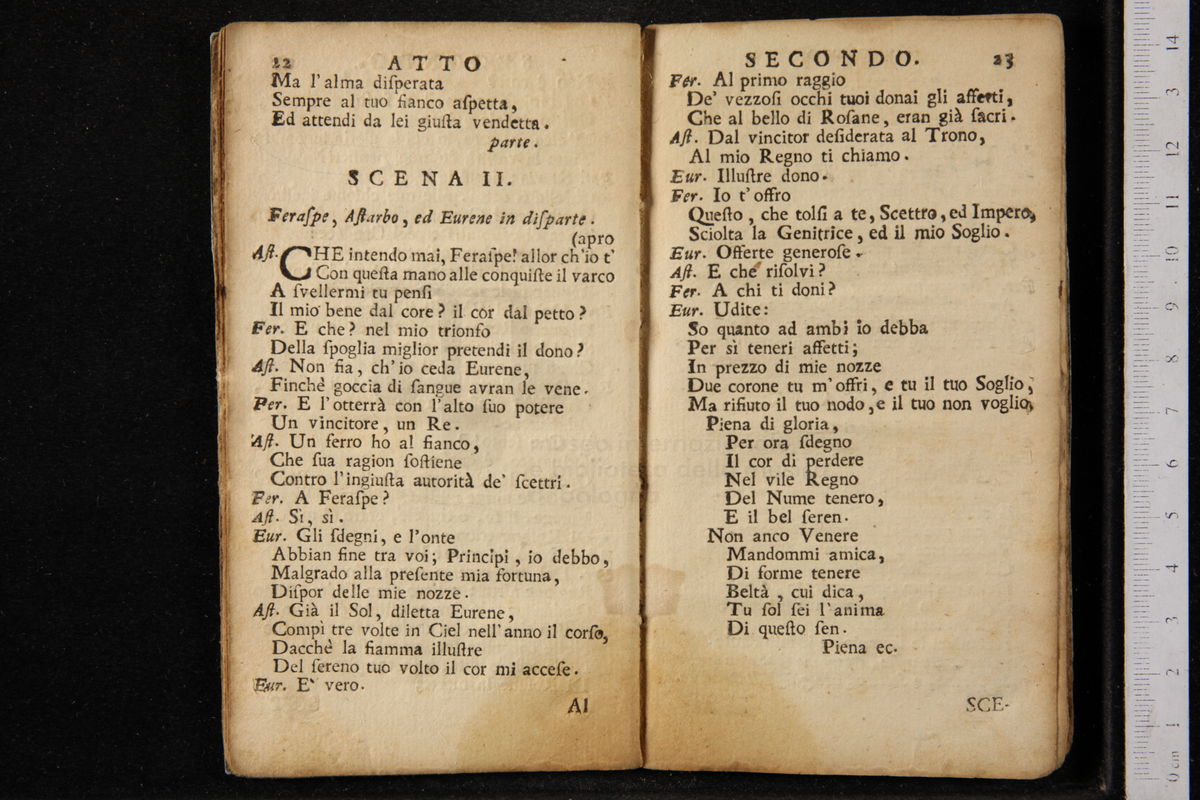 22 ATTO
Ma l'alma diſperata
Sempre al tuo fianco aſpetta,
Ed attendi da lei giuſta vendetta.
parte.
SCENA II.
Feraſpe, Aſtarbo, ed Eurene in diſparte.
(apro
Aſt. CHE intendo mai, Feraſpe! allor ch'io t'
Con queſta mano alle conquiſte il varco
A ſvellermi tu penſi
Il mio bene dal core? il cor dal petto?
Fer. E che? nel mio trionfo
Della ſpoglia miglior pretendi il dono?
Aſt. Non fia, ch'io ceda Eurene,
Finchè goccia di ſangue avran le vene.
Fer. E l'otterrà con l'alto ſuo potere
Un vincitore, un Re.
Aſt. Un ferro ho al fianco,
Che ſua ragion ſoſtiene
Contro l'ingiuſta autorità de' ſcettri.
Fer. A Feraſpe?
Aſt. Sì, sì.
Eur. Gli ſdegni, e l'onte
Abbian fine tra voi; Principi, io debbo,
Malgrado alla preſente mia fortuna,
Diſpor delle mie nozze.
Aſt. Già il Sol, diletta Eurene,
Compì tre volte in Ciel nell'anno il corſo,
Dacchè la fiamma illuſtre
Del ſereno tuo volto il cor mi acceſe.
Eur. E` vero.
Al
SECONDO. 23
Fer. Al primo raggio
De' vezzoſi occhi tuoi donai gli affetti,
Che al bello di Roſane, eran già ſacri.
Aſt. Dal vincitor deſiderata al Trono,
Al mio Regno ti chiamo.
Eur. Illuſtre dono.
Fer. Io t'offro
Queſto, che tolſi a te, Scettro, ed Impero,
Sciolta la Genitrice, ed il mio Soglio.
Eur. Offerte generoſe.
Aſt. E che riſolvi?
Fer. A chi ti doni?
Eur. Udite:
So quanto ad ambi io debba
Per sì teneri affetti;
In prezzo di mie nozze
Due corone tu m'offri, e tu il tuo Soglio,
Ma rifiuto il tuo nodo, e il tuo non voglio,
Piena di gloria,
Per ora ſdegno
Il cor di perdere
Nel vile Regno
Del Nume tenero,
E il bel ſeren.
Non anco Venere
Mandommi amica,
Di forme tenere
Beltà, cui dica,
Tu ſol ſei l'anima
Di queſto ſen.
Piena ec.
SCE-